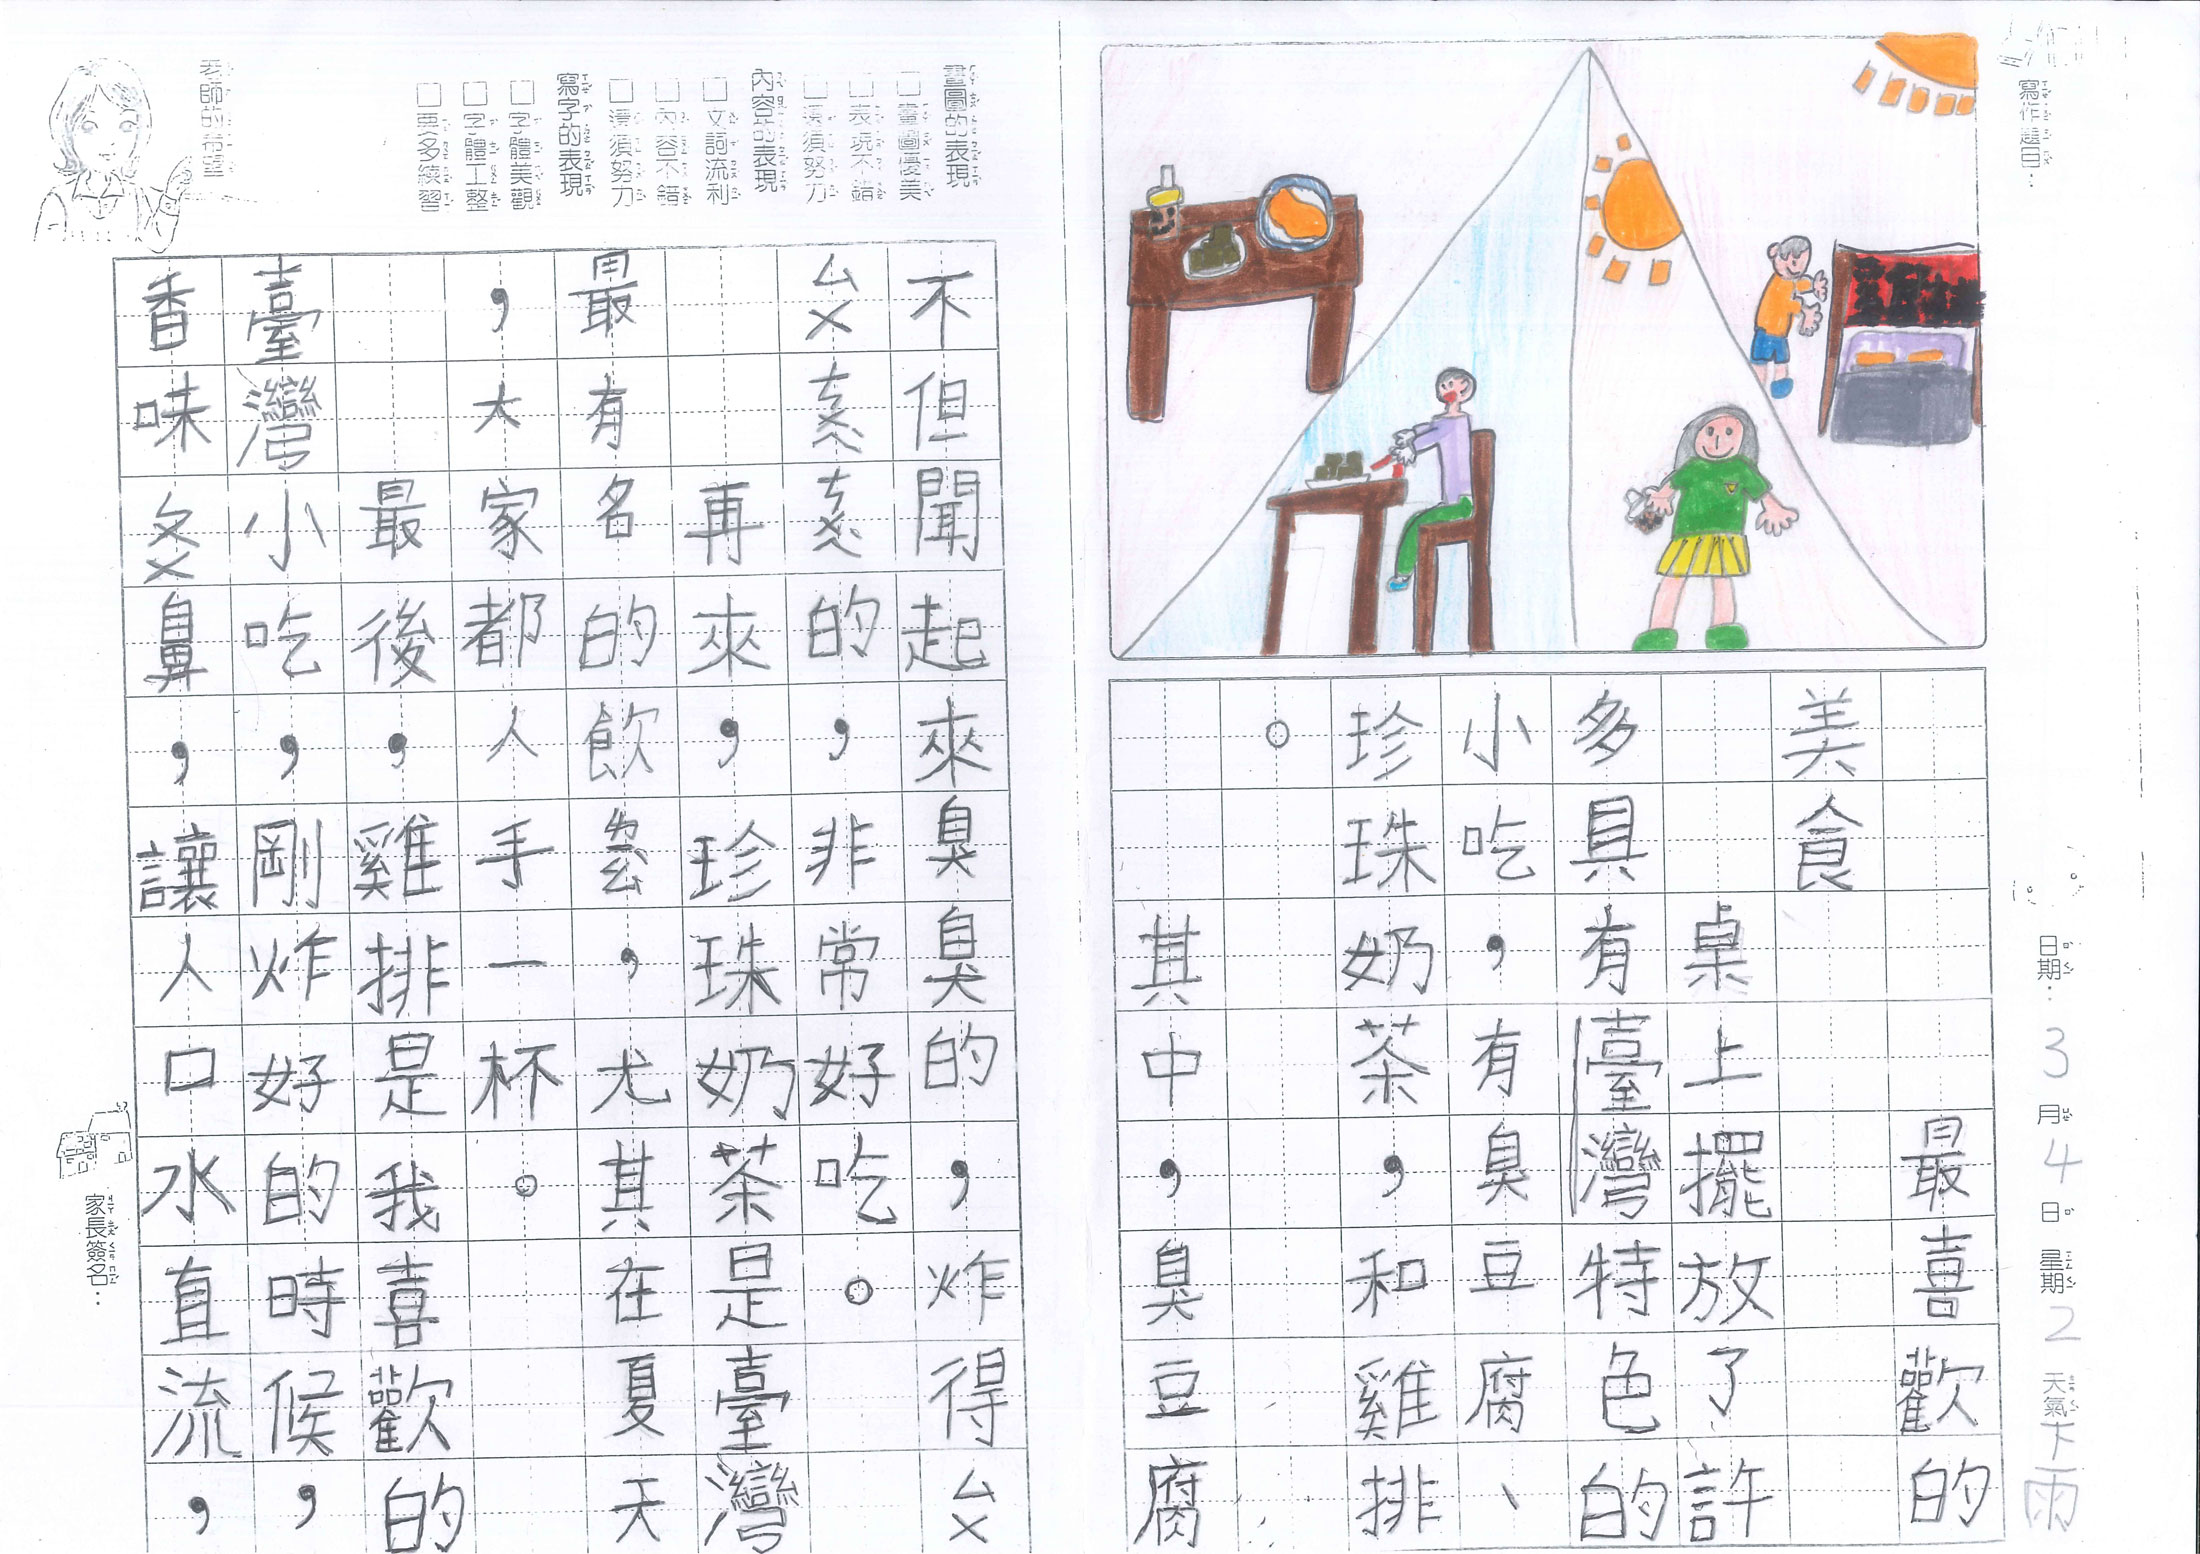 寫作題目：
日期：3月4日星期2天氣下雨
最喜歡的
美食
桌上擺放了許
多具有臺灣特色的
小吃，有臭豆腐、
珍珠奶茶，和雞排
。
其中，臭豆腐
畫圖的表現
□畫圖優美
□表現不錯
□還須努力
內容的表現
□文詞流利
□內容不錯
□還須努力
寫字的表現
□字體美觀
□字體工整
□要多練習
老師的希望
不但聞起來臭臭的，炸得ㄙㄨ
ㄙㄨㄘㄨㄟˋㄘㄨㄟˋ的，非常好吃。
再來，珍珠奶茶是臺灣
最有名的飲ㄌㄧㄠˋ，尤其在夏天
，大家都人手一杯。
最後，雞排是我喜歡的
臺灣小吃，剛炸好的時候，
香味ㄆㄨ鼻，讓人口水直流，
家長簽名：